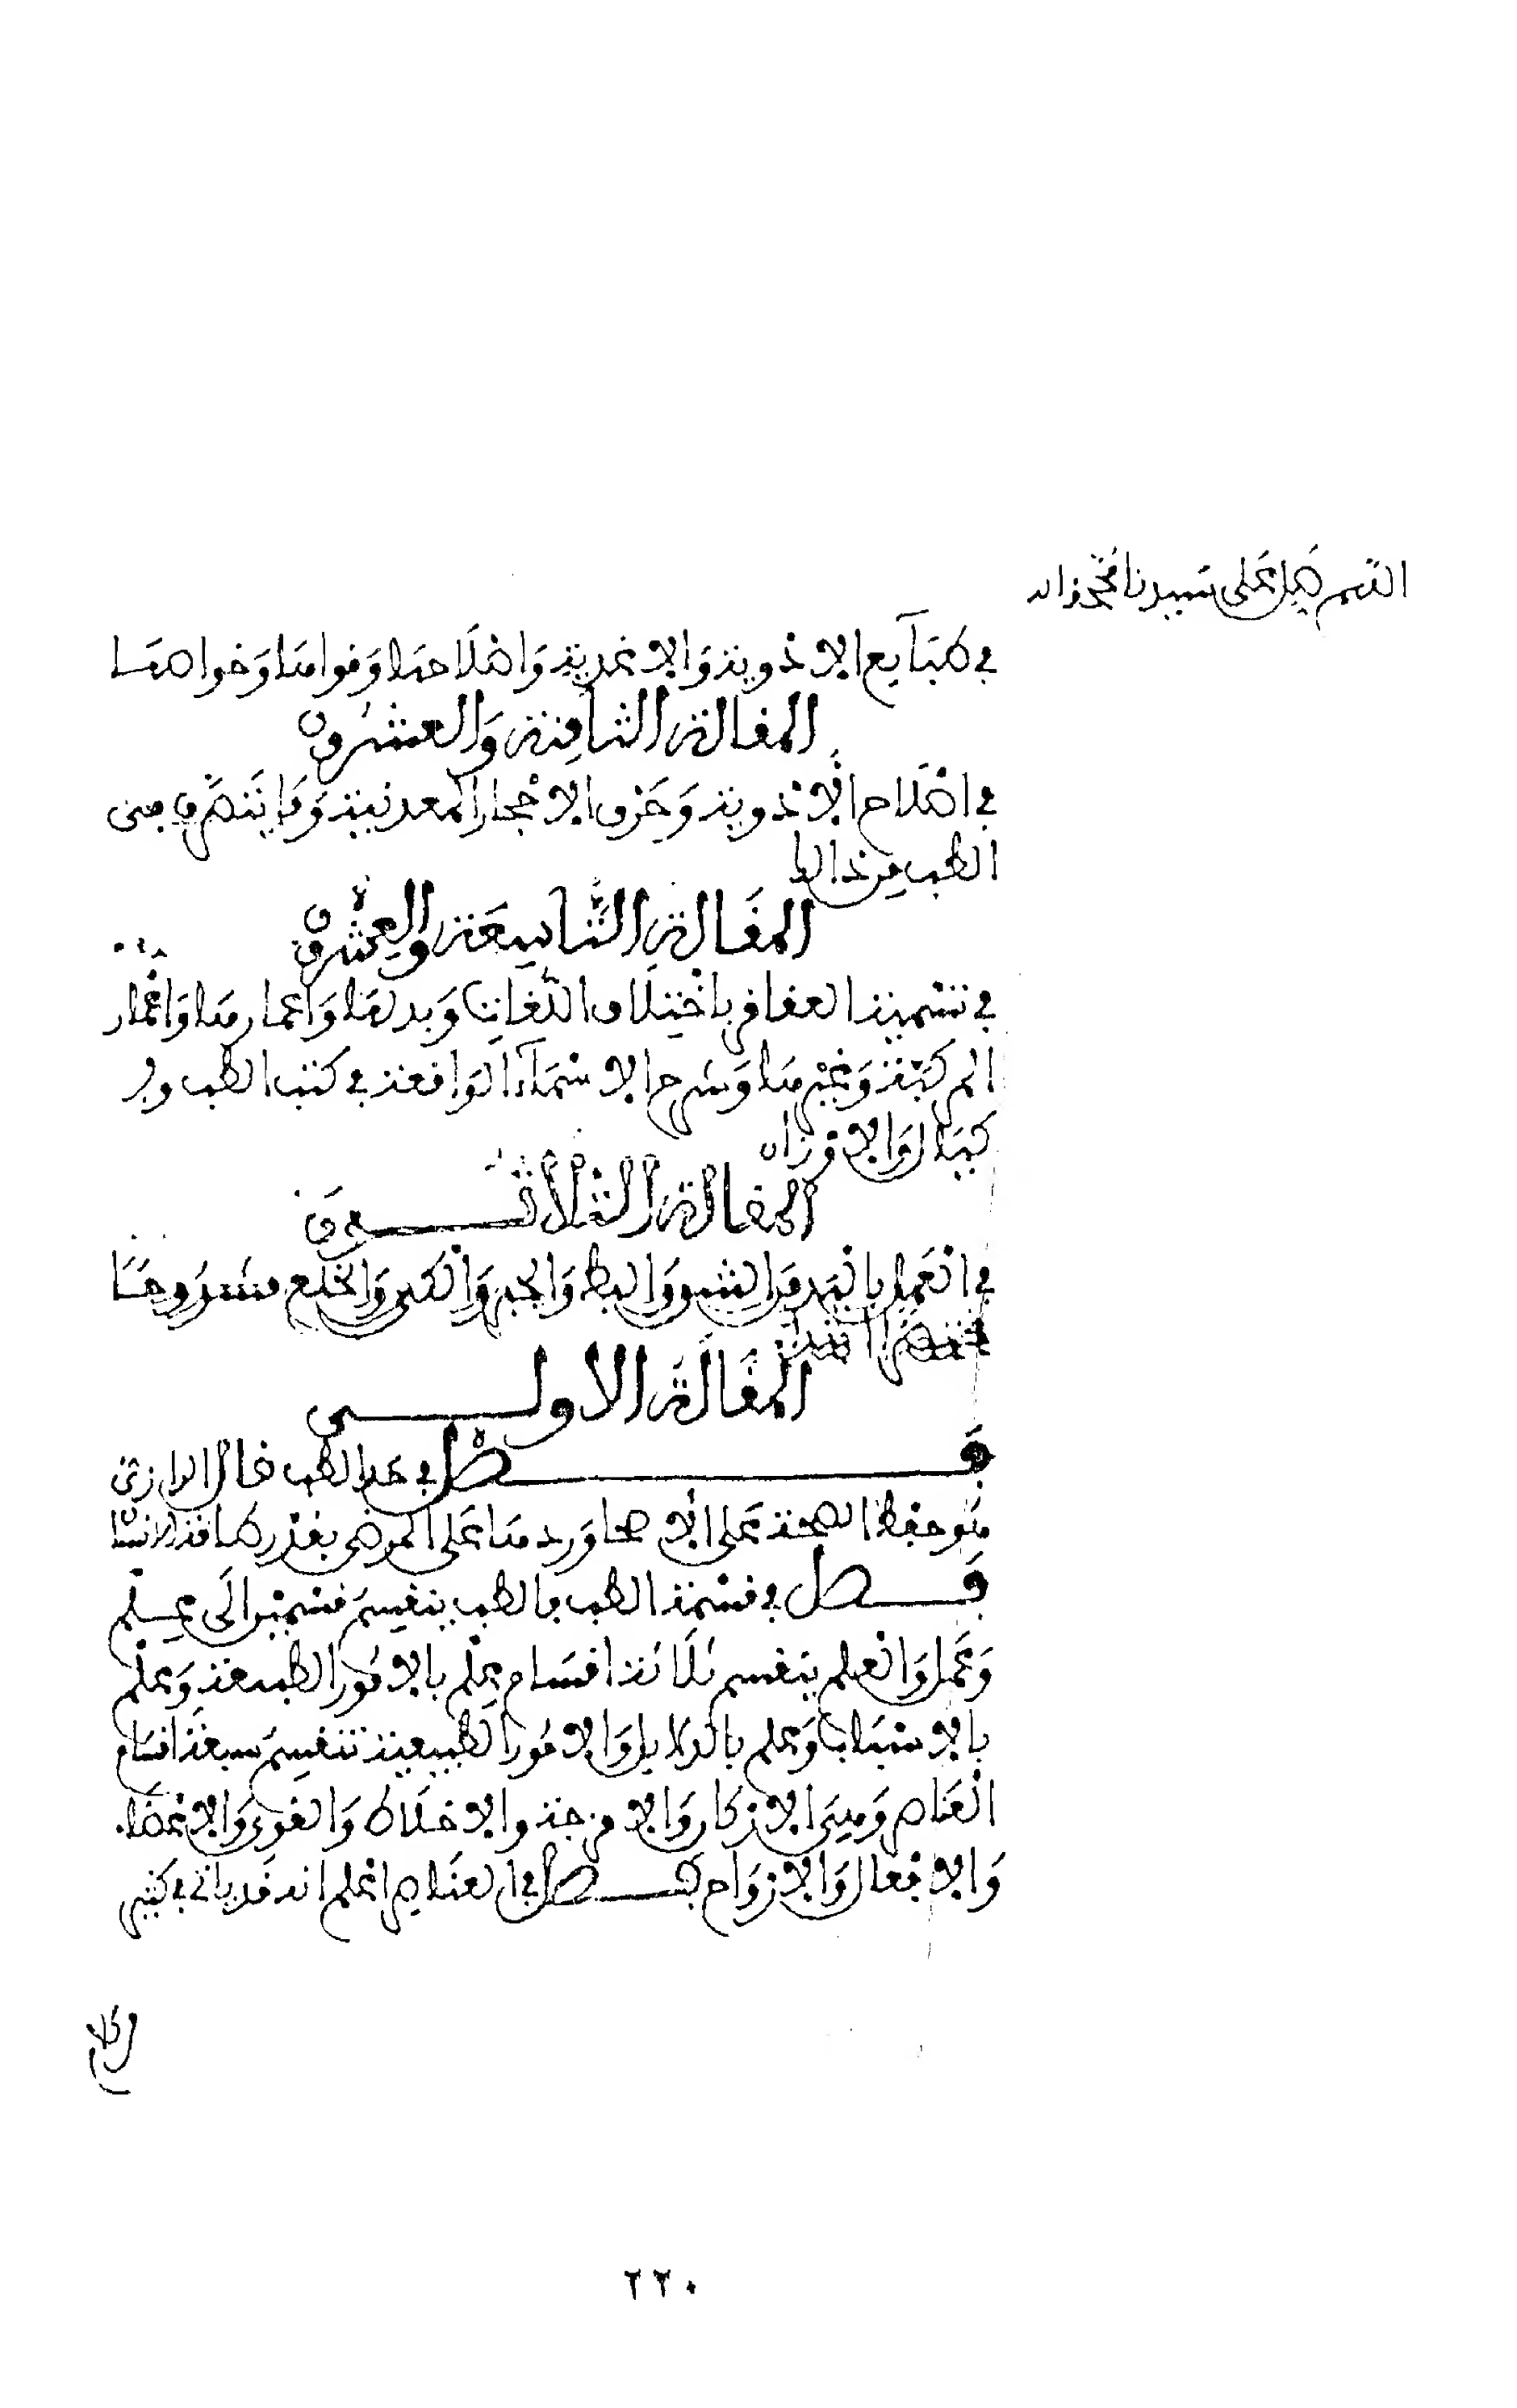 اللهم صل على سيدنا محمد واله
في طبائع الادوية والاغذية واصلاحها وقواها وخواصها
المقالة الثامنة والعشرون
في اصلاح الادوية وحرق الاحجار المعدنية وما يتصرف في
الطب من ذلك
المقالة التاسعة والعشرون
في تسمية العقاقر باختلاف اللغات وبدلها واعمارها واعمار
المركبة وغيرها وشرح الاسماء الواقعة في كتب الطب والا
كيال والاوزان
المقالة الثلاثون
في العمل باليد والشق والبط والجبر والكي والخلع مشروحا
مختصرا
المقالة الاولى
فصل في حد الطب قال الرازي
هو حفظ الصحة على الاصحا وردها على المرضى بقدر طاقة الانسان
فصل في قسمة الطب فالطب ينقسم قسمين الى علم
وعمل والعلم ينقسم ثلاثة اقسام علم بالامور الطبيعة وعلم
بالاسباب وعلم بالدلايل والامور الطبيعية تنقسم سبعة اقسام
العناصر وهي الاركان والامزجة والاخلاط والقوى والاعضاء
والافعال والارواح فصل في العناصر اعلم انه قد ياتي في كثير
من كلام
٢٢٠